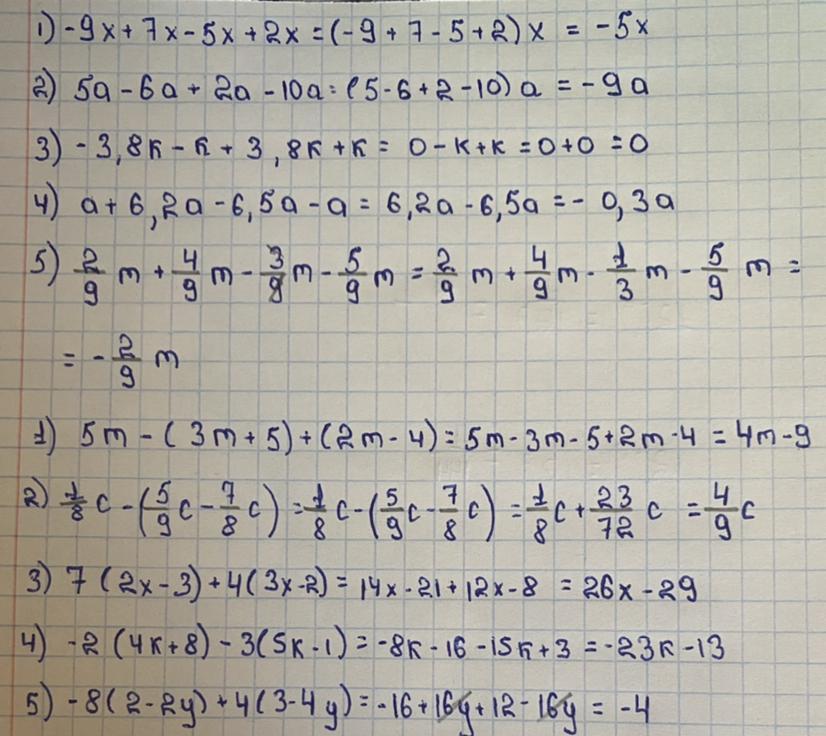 1) -9x+7x-5x+2x=(-9+7-5+2)x = -5x
2) 5a-6a+2a-10a=(5-6+2-10)a = -9a
3) -3,8k-k+3,8k+k= 0-k+k=0+0=0
4) a+6,2a-6,5a-a= 6,2a-6,5a=- 0,3a
5) 2/9 m + 4/9 m - 3/9 m - 5/9 m = 2/9 m + 4/9 m - 1/3 m - 5/9 m =
= - 2/9 m
1) 5m-(3m+5)+(2m-4)=5m-3m-5+2m-4=4m-9
2) 1/8 c -(5/9 c - 7/8 c) = 1/8 c -(5/9 c - 7/8 c) = 1/8 c + 23/72 c = 4/9 c
3) 7(2x-3)+4(3x-2)=14x-21+12x-8 =26x-29
4) -2(4k+8)-3(5k-1)=-8k-16-15k+3=-23k-13
5) -8(2-2y)+4(3-4y)=-16+16y+12-16y = -4